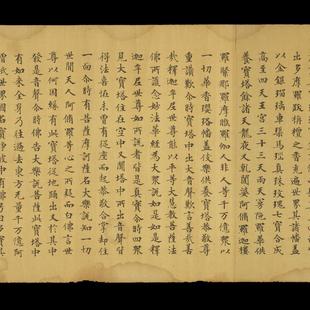 出多摩羅跋栴檀之香充遍世界其諸幡蓋
以金銀瑠璃車𤦲馬瑙真珠玫瑰七寶合成
高至四天王宮三十三天雨天曼陁羅華供
養寶塔餘諸天龍夜叉乹闥婆阿修羅迦樓
羅緊那羅摩睺羅伽人非人等千萬億眾以
一切華香瓔珞幡蓋伎樂供養寶塔恭敬尊
重讚歎尒時寶塔中出大音聲歎言善哉善
哉釋迦牟尼世尊能以平等大慧教菩薩法
佛所護念妙法華經為大眾說如是如是釋
迦牟尼世尊如所說者皆是真實尒時四眾
見大寶塔住在空中又聞塔中所出音聲皆
得法喜恠未曾有從座而起恭敬合掌却住
一面尒時有菩薩摩訶薩名大樂說知一切
世間天人阿修羅等心之所疑而白佛言世
尊以何因緣有此寶塔從地踊出又於其中
發是音聲尒時佛告大樂說菩薩此寶塔中
有如來全身乃往過去東方無量千万億阿
僧祇世界國名寶淨彼中有佛号曰多寶